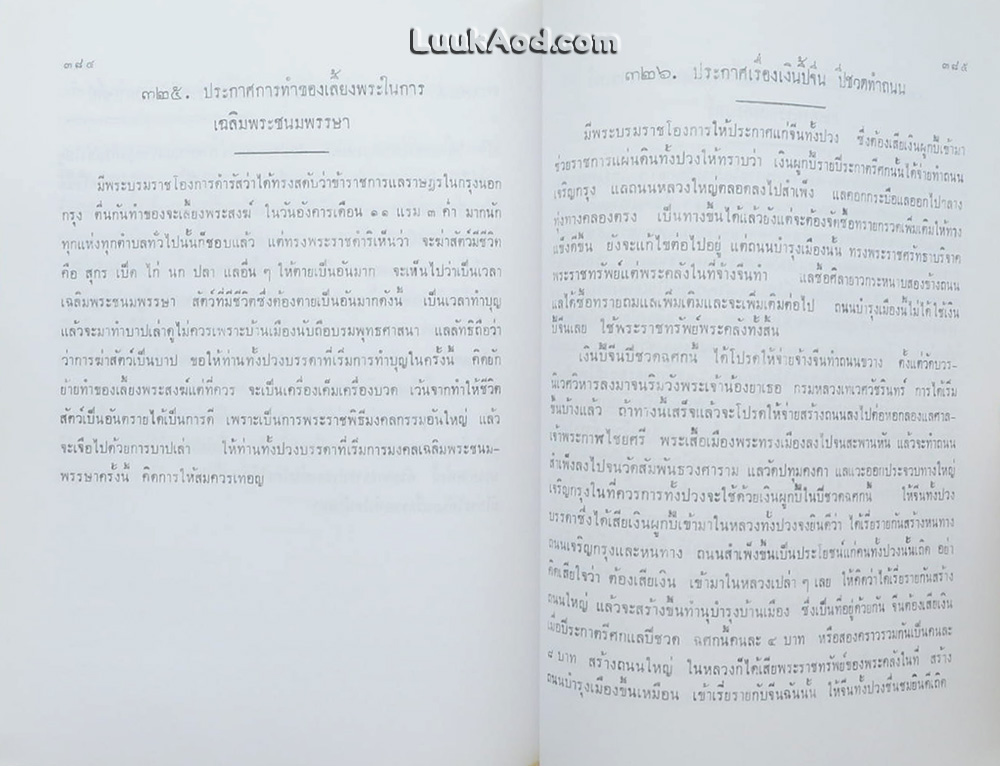 LuukAod.com
๓๘๔
๓๒๕. ประกาศการทำของเลี้ยงพระในการ
เฉลิมพระชนมพรรษา
มีพระบรมราชโองการดำรัสว่าได้ทรงสดับว่าข้าราชการแลราษฎรในกรุงนอก
กรุง ตื่นกันทำของจะเลี้ยงพระสงฆ์ ในวันอังคารเดือน ๑๑ แรม ๓ ค่ำ มากนัก
ทุกแห่งทุกตำบลทั่วไปนั้นก็ชอบแล้ว แต่ทรงพระราชดำริเห็นว่า จะฆ่าสัตว์มีชีวิต
คือ สุกร เป็ด ไก่ นก ปลา แลอื่น ๆ ให้ตายเป็นอันมาก จะเห็นไปว่าเป็นเวลา
เฉลิมพระชนมพรรษา สัตว์ที่มีชีวิตซึ่งต้องตายเป็นอันมากดังนี้ เป็นเวลาทำบุญ
แล้วจะมาทำบาปเล่าดูไม่ควรเพราะบ้านเมืองนับถือบรมพุทธศาสนา แลลัทธิถือว่า
ว่าการฆ่าสัตว์เป็นบาป ขอให้ท่านทั้งปวงบรรดาที่เริ่มการทำบุญในครั้งนี้ คิดยัก
ย้ายทำของเลี้ยงพระสงฆ์แต่ที่ควร จะเป็นเครื่องเค็มเครื่องบวด เว้นจากทำให้ชีวิต
สัตว์เป็นอันตรายได้เป็นการดี เพราะเป็นการพระราชพิธีมงคลกรรมอันใหญ่ แล้ว
จะเจือไปด้วยการบาปเล่า ให้ท่านทั้งปวงบรรดาที่เริ่มการมงคลเฉลิมพระชนม-
พรรษาครั้งนี้ คิดการให้สมควรเทอญ
๓๘๕
๓๒๖. ประกาศเรื่องเงินปี้จีน ปีชวดทำถนน
มีพระบรมราชโองการให้ประกาศแก่จีนทั้งปวง ซึ่งต้องเสียเงินผูกปี้เข้ามา
ช่วยราชการแผ่นดินทั้งปวงให้ทราบว่า เงินผูกปี้รายปีระกาตรีศกนั้นได้จ่ายทำถนน
เจริญกรุง แลถนนหลวงใหญ่ตลอดลงไปสำเพ็ง แลตอกกระบือแลออกไปกลาง
ทุ่งทางคลองตรง เป็นทางขึ้นได้แล้วยังแต่จะต้องจัดซื้อทรายกรวดเพิ่มเติมให้ทาง
แข็งดีขึ้น ยังจะแก้ไขต่อไปอยู่ แต่ถนนบำรุงเมืองนั้น ทรงพระราชศรัทธาบริจาค
พระราชทรัพย์แต่พระคลังในที่จ้างจีนทำ แลซื้อศิลายาวกระหนาบสองข้างถนน
แลได้ซื้อทรายถมแลเพิ่มเติมและจะเพิ่มเติมต่อไป ถนนบำรุงเมืองนี้ไม่ได้ใช้เงิน
ปี้จีนเลย ใช้พระราชทรัพย์พระคลังทั้งสิ้น
เงินปี้จีนปีชวดฉศกนี้ ได้โปรดให้จ่ายจ้างจีนทำถนนขวาง ตั้งแต่วัดบวร-
นิเวศวิหารลงมาจนริมวังพระเจ้าน้องยาเธอ กรมหลวงเทเวศร์วัชรินทร์ การได้เริ่ม
ขึ้นบ้างแล้ว ถ้าทางนี้เสร็จแล้วจะโปรดให้จ่ายสร้างถนนลงไปต่อหอกลองแลศาล-
เจ้าพระกาฬไชยศรี พระเสื้อเมืองพระทรงเมืองลงไปจนสะพานหัน แล้วจะทำถนน
สำเพ็งลงไปจนวัดสัมพันธวงศาราม แลวัดปทุมคงคา แลแวะออกประจวบทางใหญ่
เจริญกรุงในที่ควรการทั้งปวงจะใช้ด้วยเงินผูกปี้ในปีชวดฉศกนี้ ให้จีนทั้งปวง
บรรดาซึ่งได้เสียเงินผูกปี้เข้ามาในหลวงทั้งปวงจงยินดีว่า ได้เรี่ยรายกันสร้างหนทาง
ถนนเจริญกรุงและหนทาง ถนนสำเพ็งขึ้นเป็นประโยชน์แก่คนทั้งปวงนั้นเถิด อย่า
คิดเสียใจว่า ต้องเสียเงิน เข้ามาในหลวงเปล่า ๆ เลย ให้คิดว่าได้เรี่ยรายกันสร้าง
ถนนใหญ่ แล้วจะสร้างขึ้นทำนุบำรุงบ้านเมือง ซึ่งเป็นที่อยู่ด้วยกัน จีนต้องเสียเงิน
เมื่อปีระกาตรีศกแลปีชวด ฉศกนี้คนละ ๔ บาท หรือสองคราวรวมกันเป็นคนละ
๘ บาท สร้างถนนใหญ่ ในหลวงก็ได้เสียพระราชทรัพย์ของพระคลังในที่ สร้าง
ถนนบำรุงเมืองขึ้นเหมือน เข้าเรี่ยรายกับจีนฉันนั้น ให้จีนทั้งปวงชื่นชมยินดีเถิด